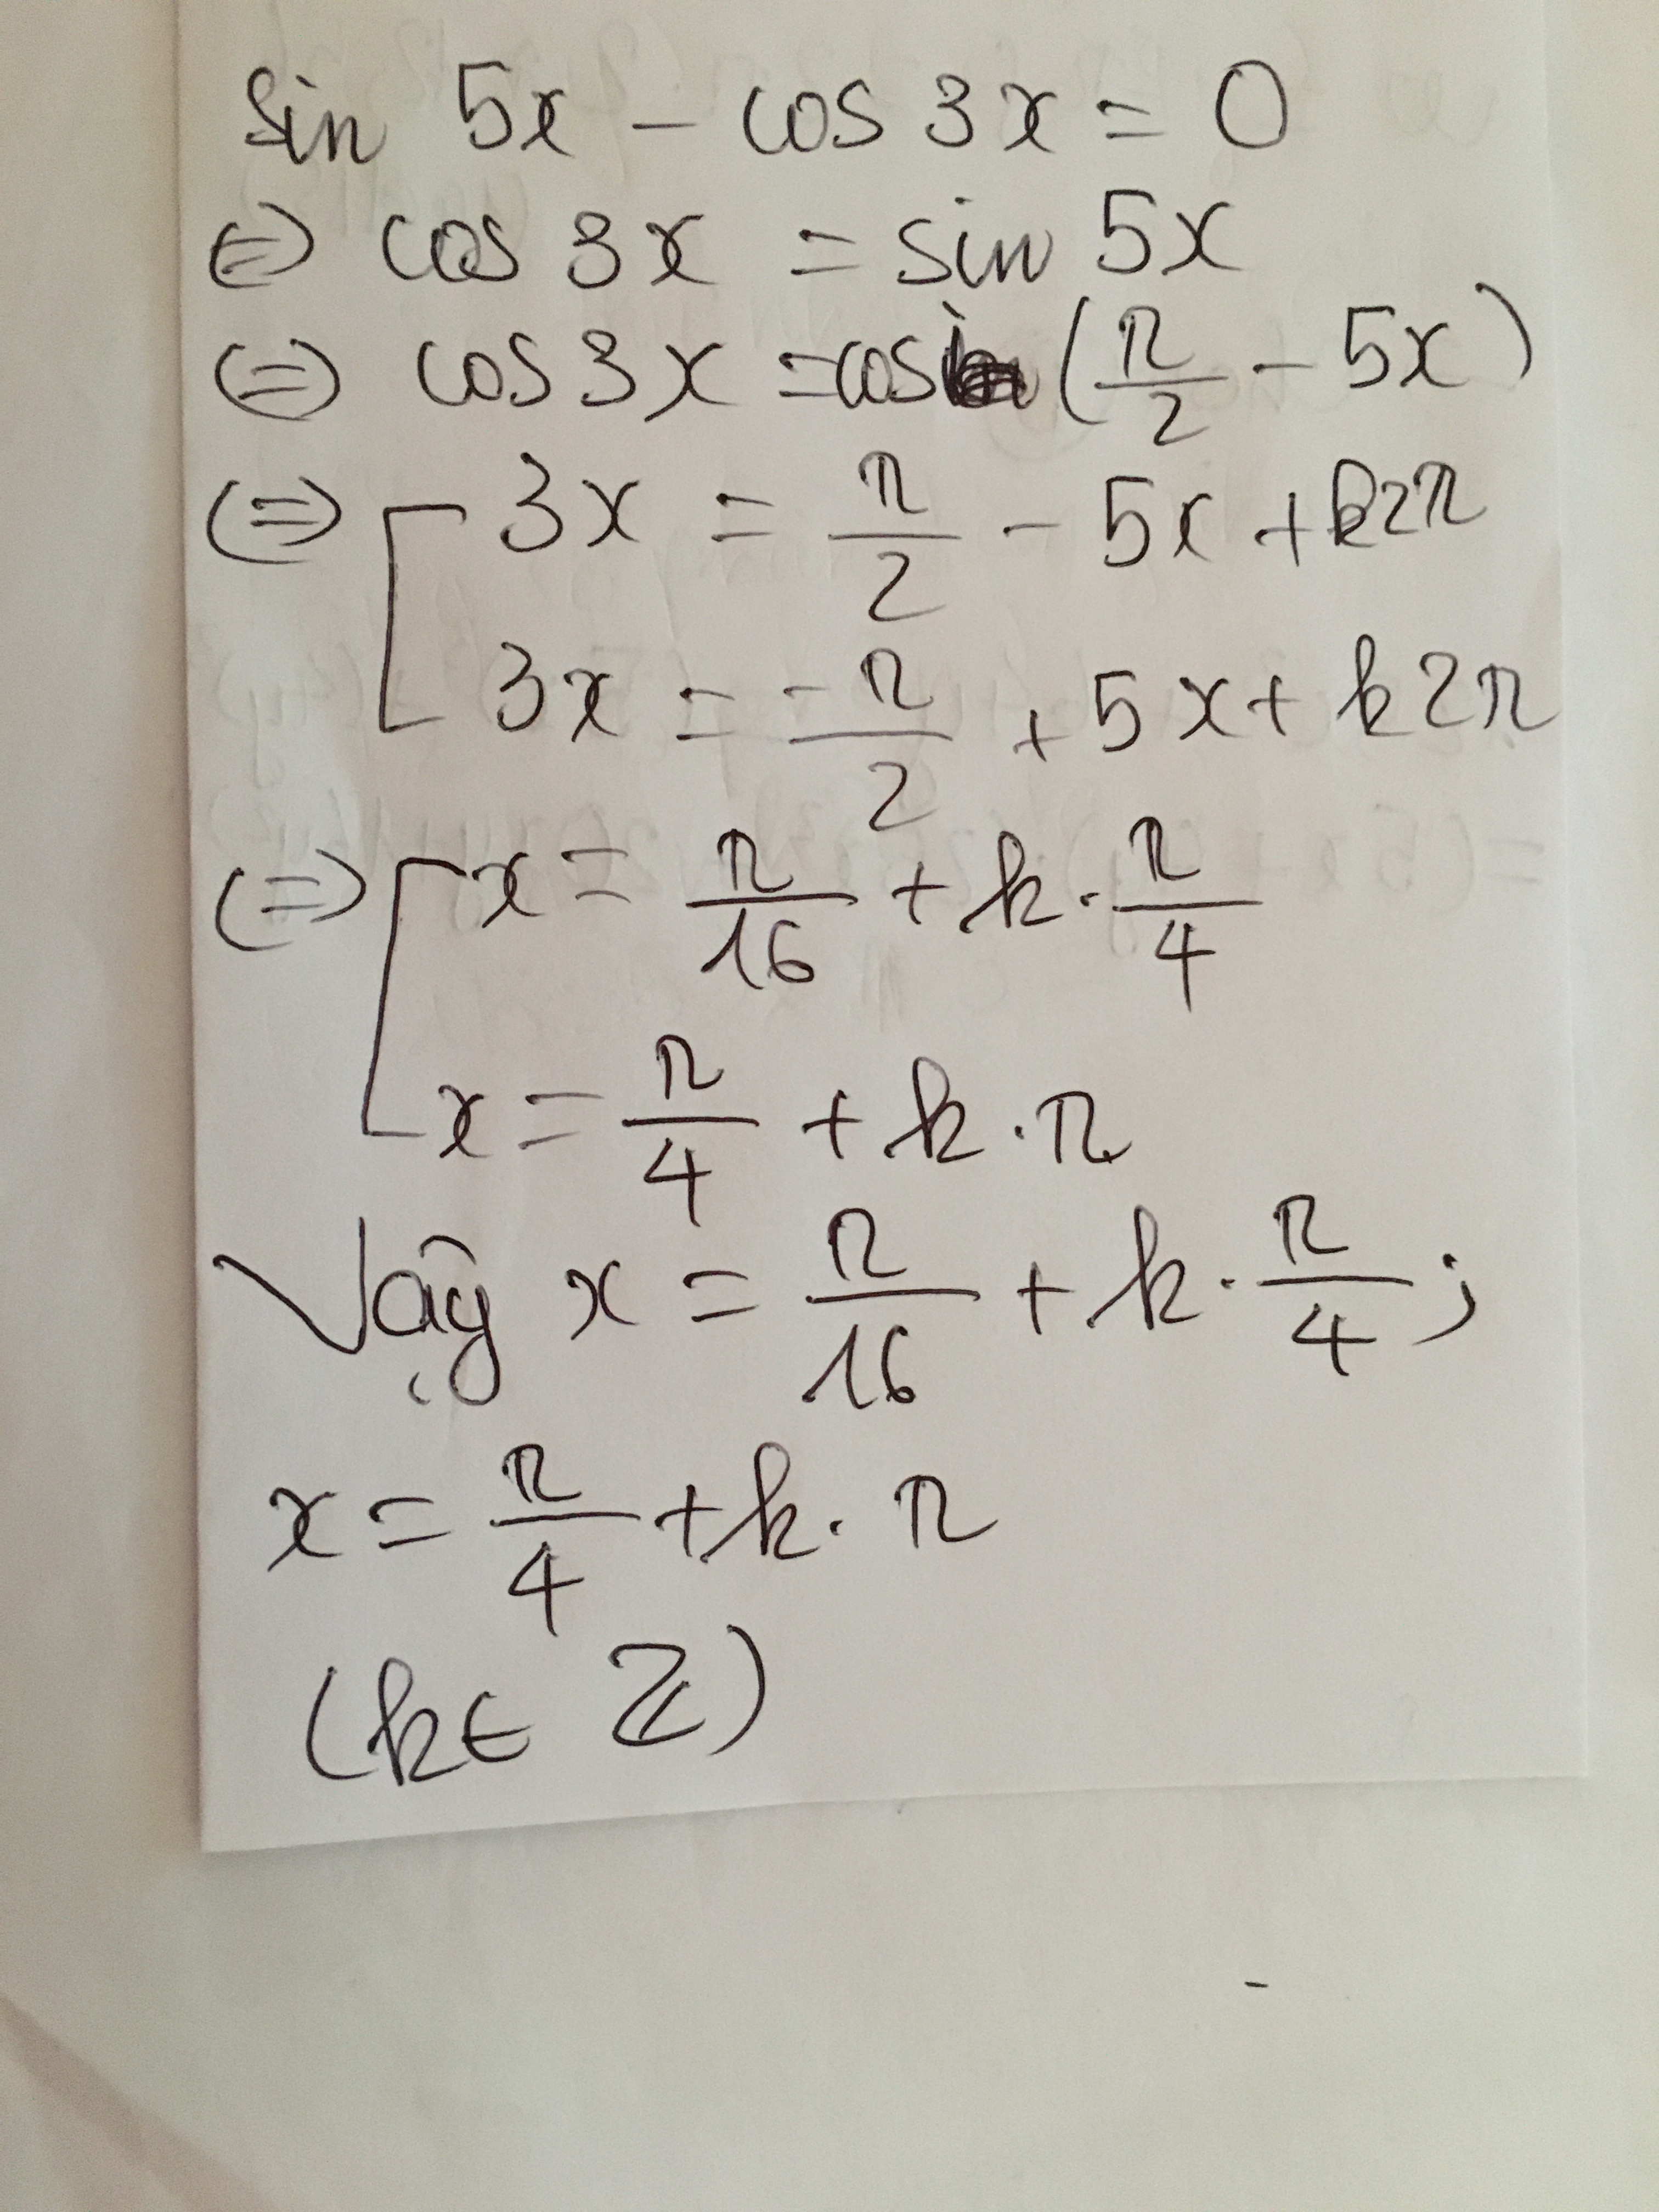 sin 5x - cos 3x = 0
⇔ cos 3x = sin 5x
⇔ cos 3x = cos (π/2 - 5x)
⇔ [ 3x = π/2 - 5x + k2π
3x = -π/2 + 5x + k2π
⇔ [ x = π/16 + k . π/4
x = π/4 + k . π
Vậy x = π/16 + k . π/4 ;
x = π/4 + k . π
(k ∈ Z)